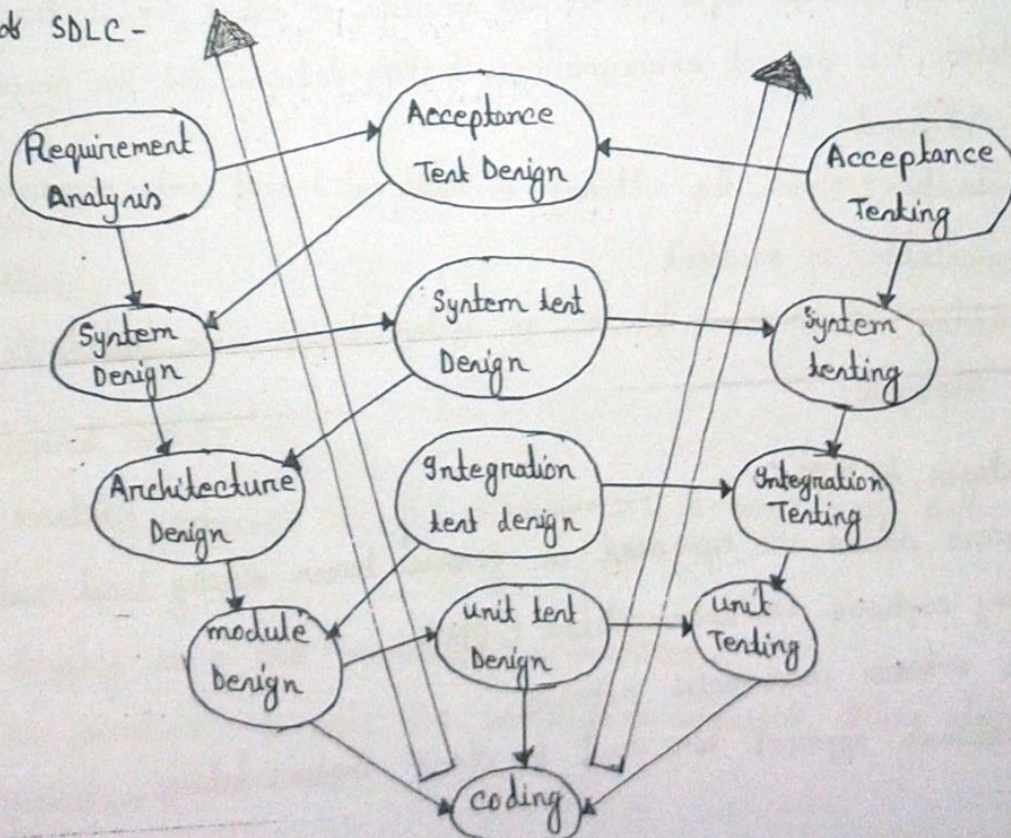 of SDLC -
Requirement
Analysis
Acceptance
Test Design
Acceptance
Testing
System
Design
System test
Design
System
testing
Architecture
Design
Integration
test design
Integration
Testing
module
Design
unit test
Design
unit
Testing
coding